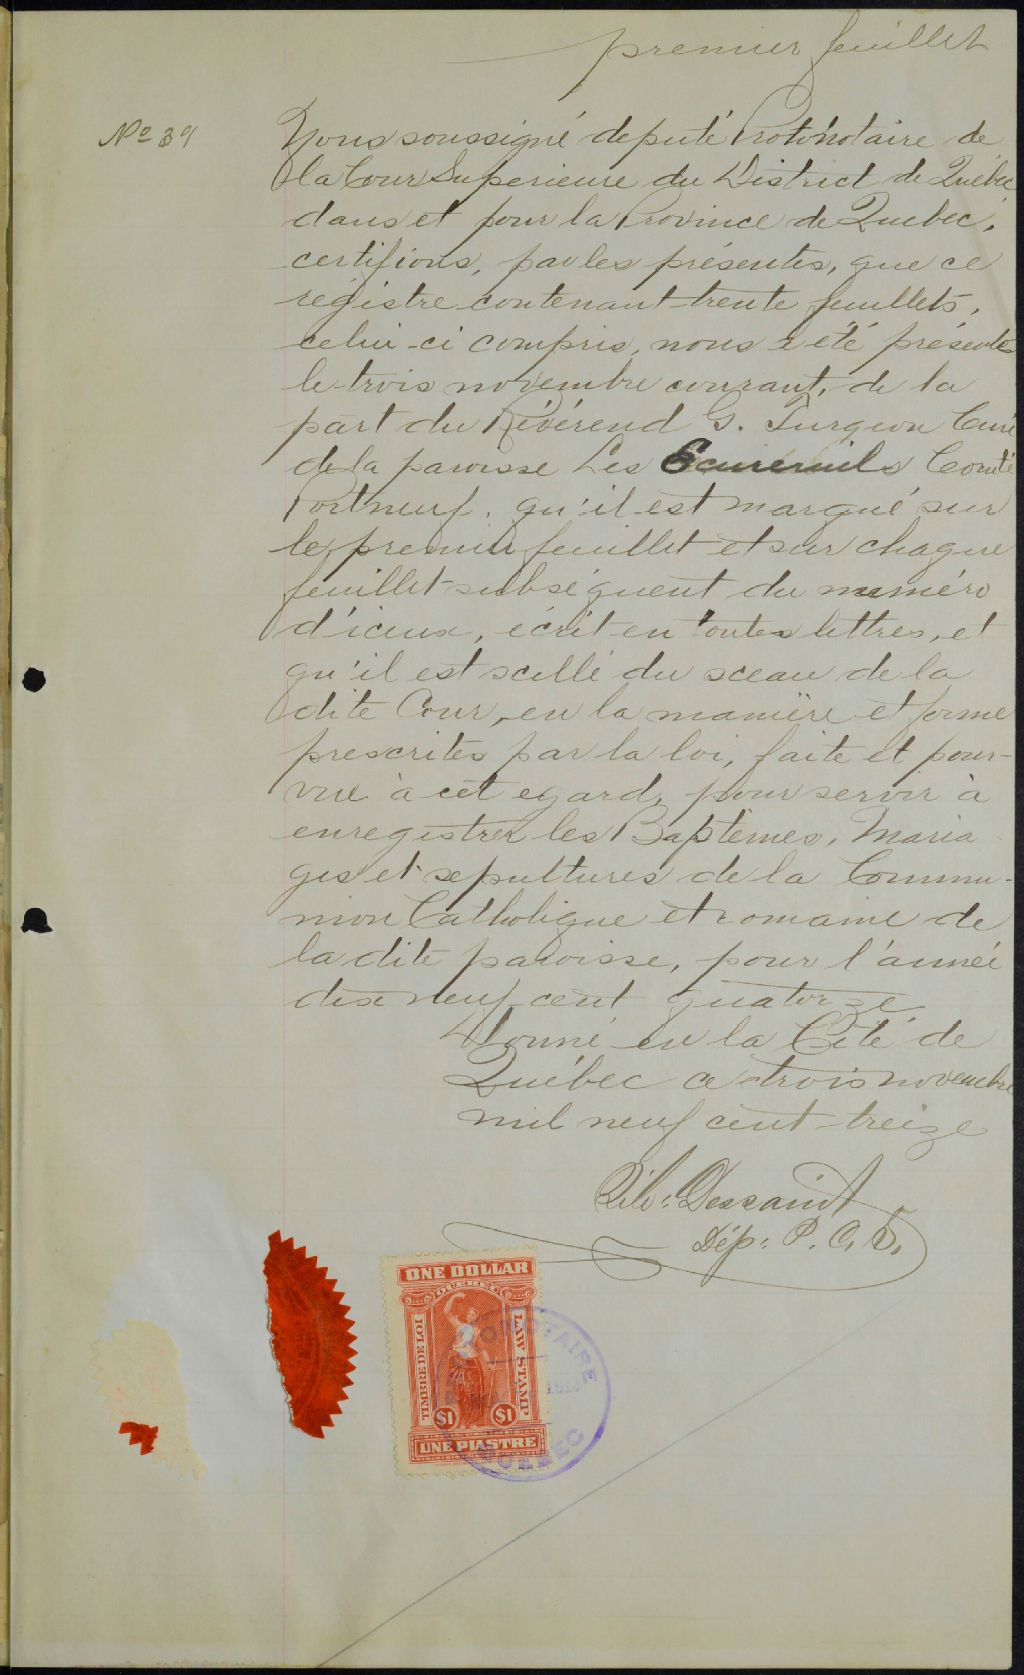 premier feuillet
No 39
Nous soussigné deputé Protonotaire de
la Cour Superieure du District de Québec
dans et pour la Province de Quebec,
certifions, par les présentes, que ce
régistre contenant trente feuillets,
celui-ci compris, nous a été présenté
le trois novembre courant, de la
part du Révérend G. Turgeon Curé
de la paroisse Les Ecureuils Comté
Portneuf, qu'il est marqué sur
le premier feuillet et sur chaque
feuillet subséquent du numéro
d'iceux, écrit en toutes lettres, et
qu'il est scellé du sceau de la
dite Cour, en la manière et forme
prescrites par la loi, faite et pour-
vue à cet egard, pour servir à
enregistrer les Baptêmes, Maria-
ges et sepultures de la Commu-
nion Catholique et romaine de
la dite paroisse, pour l'année
dix neuf cent quatorze
Donné en la Cité de
Québec ce trois novembre
mil neuf cent treize
Dessaint
Dép: P. C. S.
ONE DOLLAR
QUEBEC
TIMBRE DE LOI
LAW STAMP
$1 $1
UNE PIASTRE
PROTONOTAIRE
QUEBEC